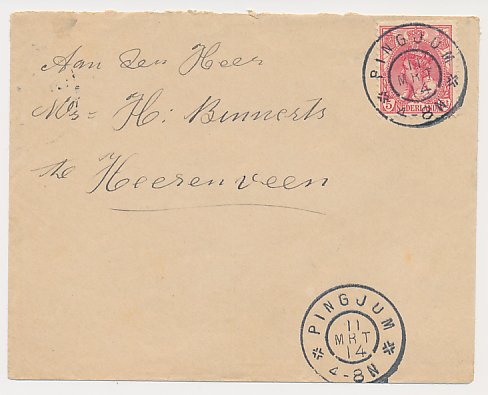 Aan den Heer
Mr= H: Binnerts
te Heerenveen
PINGJUM
11
MRT
14
4-8N
5
NEDERLAND
PINGJUM
11
MRT
14
4-8N